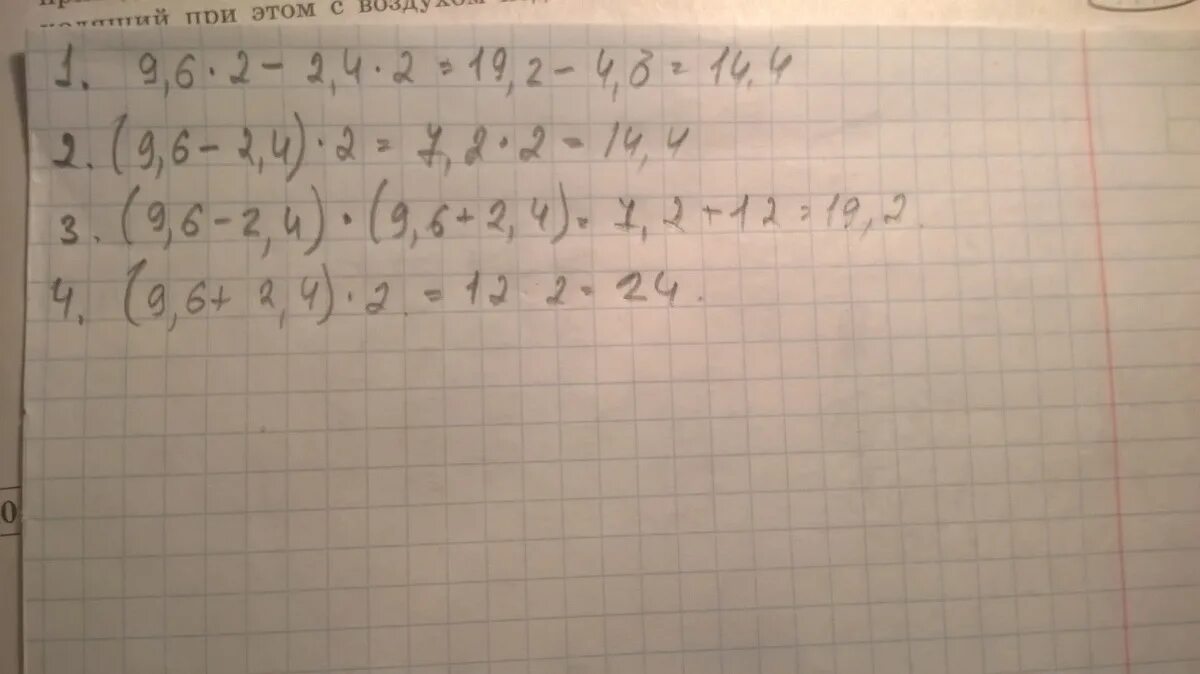 при этом с воздухом
1. 9,6 · 2 - 2,4 · 2 = 19,2 - 4,8 = 14.4
2. (9,6 - 2,4) · 2 = 7,2 · 2 = 14,4
3. (9,6 - 2,4) · (9,6 + 2,4) = 7,2 + 12 = 19,2.
4. (9,6 + 2,4) · 2 = 12 2 = 24.
0